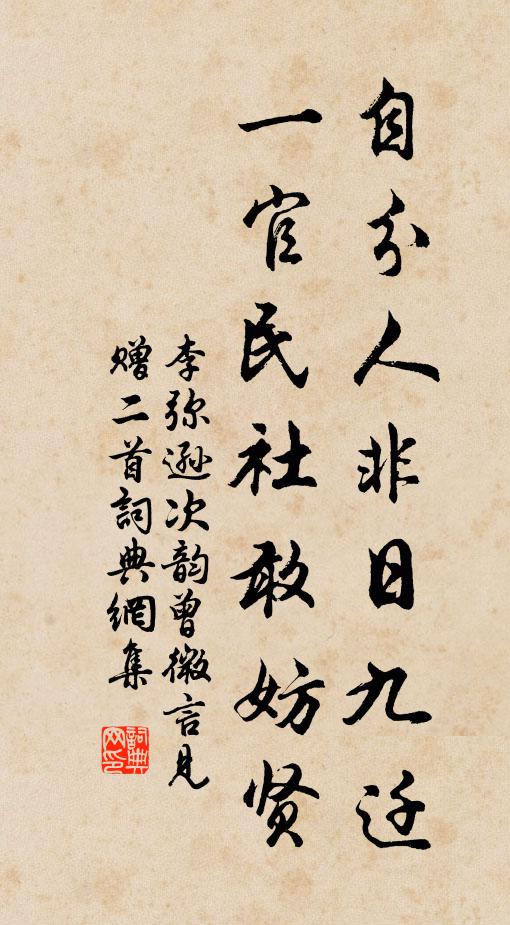 自分人非日九迁
一官民社敢妨贤
李弥逊次韵曾微言见
赠二首詞典網集
詞典
网印